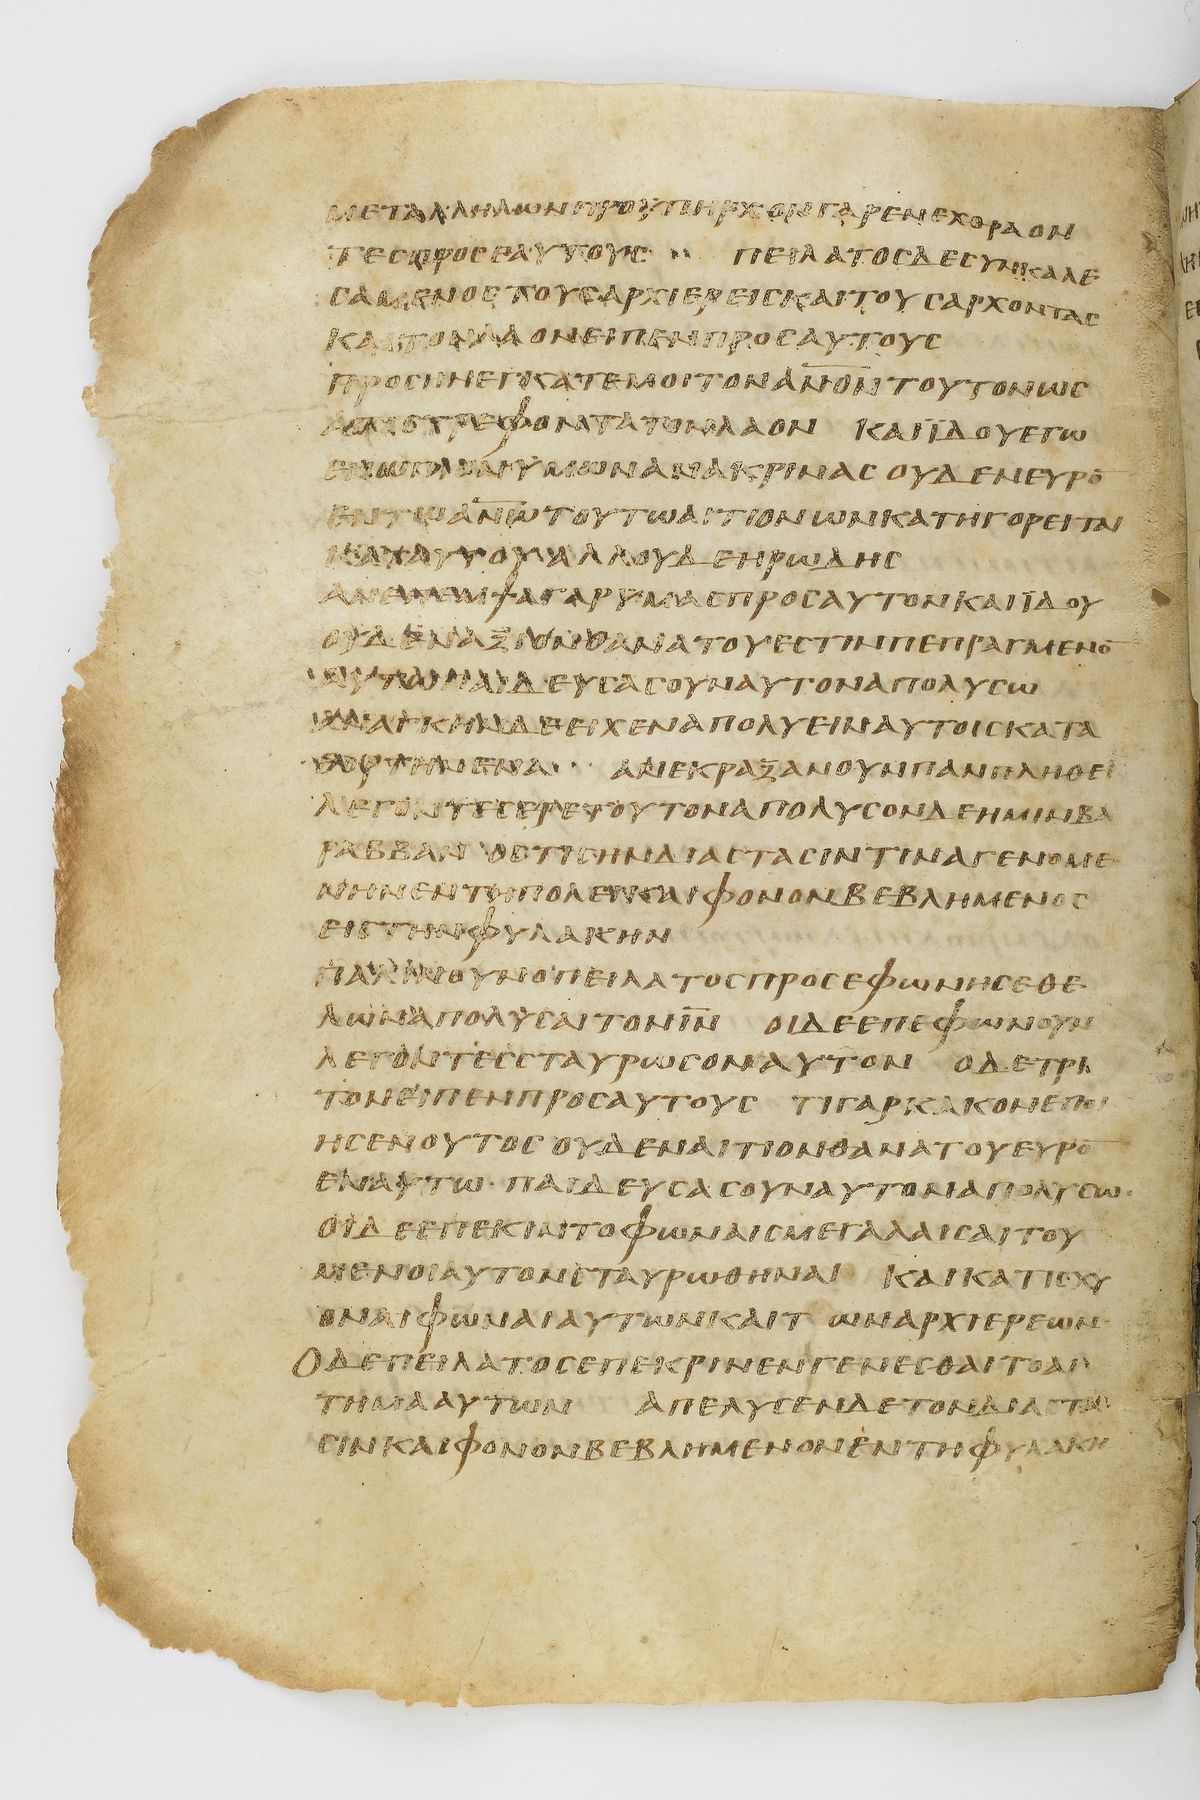 ΜΕΤΑΛΛΗΛΩΝΠΡΟΥΠΗΡΧΟΝΓΑΡΕΝΕΧΘΡΑΟΝ
ΤΕΣΠΡΟΣΕΑΥΤΟΥΣ ΠΕΙΛΑΤΟΣΔΕΣΥΝΚΑΛΕ
ΣΑΜΕΝΟΣΤΟΥΣΑΡΧΙΕΡΕΙΣΚΑΙΤΟΥΣΑΡΧΟΝΤΑΣ
ΚΑΙΤΟΝΛΑΟΝΕΙΠΕΝΠΡΟΣΑΥΤΟΥΣ
ΠΡΟΣΗΝΕΓΚΑΤΕΜΟΙΤΟΝΑΝ̅Ο̅Ν̅ΤΟΥΤΟΝΩΣ
ΑΠΟΣΤΡΕΦΟΝΤΑΤΟΝΛΑΟΝ ΚΑΙΪΔΟΥΕΓΩ
ΕΝΩΠΙΟΝΥΜΩΝΑΝΑΚΡΙΝΑΣΟΥΔΕΝΕΥΡΟ̅
ΕΝΤΩΑΝ̅Ω̅ΤΟΥΤΩΑΙΤΙΟΝΩΝΚΑΤΗΓΟΡΕΙΤΑΙ
ΚΑΤΑΥΤΟΥΑΛΛΟΥΔΕΗΡΩΔΗΣ
ΑΝΕΠΕΜΨΑΓΑΡΥΜΑΣΠΡΟΣΑΥΤΟΝΚΑΙΪΔΟΥ
ΟΥΔΕΝΑΞΙΟΝΘΑΝΑΤΟΥΕΣΤΙΝΠΕΠΡΑΓΜΕΝΟ̅
ΑΥΤΩΠΑΙΔΕΥΣΑΣΟΥΝΑΥΤΟΝΑΠΟΛΥΣΩ
ΑΝΑΓΚΗΝΔΕΕΙΧΕΝΑΠΟΛΥΕΙΝΑΥΤΟΙΣΚΑΤΑ
ΕΟΡΤΗΝΕΝΑ ΑΝΕΚΡΑΞΑΝΟΥΝΠΑΝΠΛΗΘΕΙ
ΛΕΓΟΝΤΕΣΕΡΕΤΟΥΤΟΝΑΠΟΛΥΣΟΝΔΕΗΜΙΝΒΑ
ΡΑΒΒΑΝΟΣΤΙΣΗΝΔΙΑΣΤΑΣΙΝΤΙΝΑΓΕΝΟΜΕ
ΝΗΝΕΝΤΗΠΟΛΕΙΚΑΙΦΟΝΟΝΒΕΒΛΗΜΕΝΟΣ
ΕΙΣΤΗΝΦΥΛΑΚΗΝ
ΠΑΛΙΝΟΥΝΟΠΕΙΛΑΤΟΣΠΡΟΣΕΦΩΝΗΣΕΘΕ
ΛΩΝΑΠΟΛΥΣΑΙΤΟΝΙ̅Ν̅ ΟΙΔΕΕΠΕΦΩΝΟΥΝ
ΛΕΓΟΝΤΕΣΣΤΑΥΡΩΣΟΝΑΥΤΟΝ ΟΔΕΤΡΙ
ΤΟΝΕΙΠΕΝΠΡΟΣΑΥΤΟΥΣ ΤΙΓΑΡΚΑΚΟΝΕΠΟΙ
ΗΣΕΝΟΥΤΟΣΟΥΔΕΝΑΙΤΙΟΝΘΑΝΑΤΟΥΕΥΡΟ̅
ΕΝΑΥΤΩ·ΠΑΙΔΕΥΣΑΣΟΥΝΑΥΤΟΝΑΠΟΛΥΣΩ·
ΟΙΔΕΕΠΕΚΙΝΤΟΦΩΝΑΙΣΜΕΓΑΛΑΙΣΑΙΤΟΥ
ΜΕΝΟΙΑΥΤΟΝΣΤΑΥΡΩΘΗΝΑΙ ΚΑΙΚΑΤΙΣΧΥ
ΟΝΑΙΦΩΝΑΙΑΥΤΩΝΚΑΙΤΩΝΑΡΧΙΕΡΕΩΝ·
ΟΔΕΠΕΙΛΑΤΟΣΕΠΕΚΡΙΝΕΝΓΕΝΕΣΘΑΙΤΟΑΙ
ΤΗΜΑΑΥΤΩΝ ΑΠΕΛΥΣΕΝΔΕΤΟΝΔΙΑΣΤΑ
ΣΙΝΚΑΙΦΟΝΟΝΒΕΒΛΗΜΕΝΟΝΕΝΤΗΦΥΛΑΚΗ